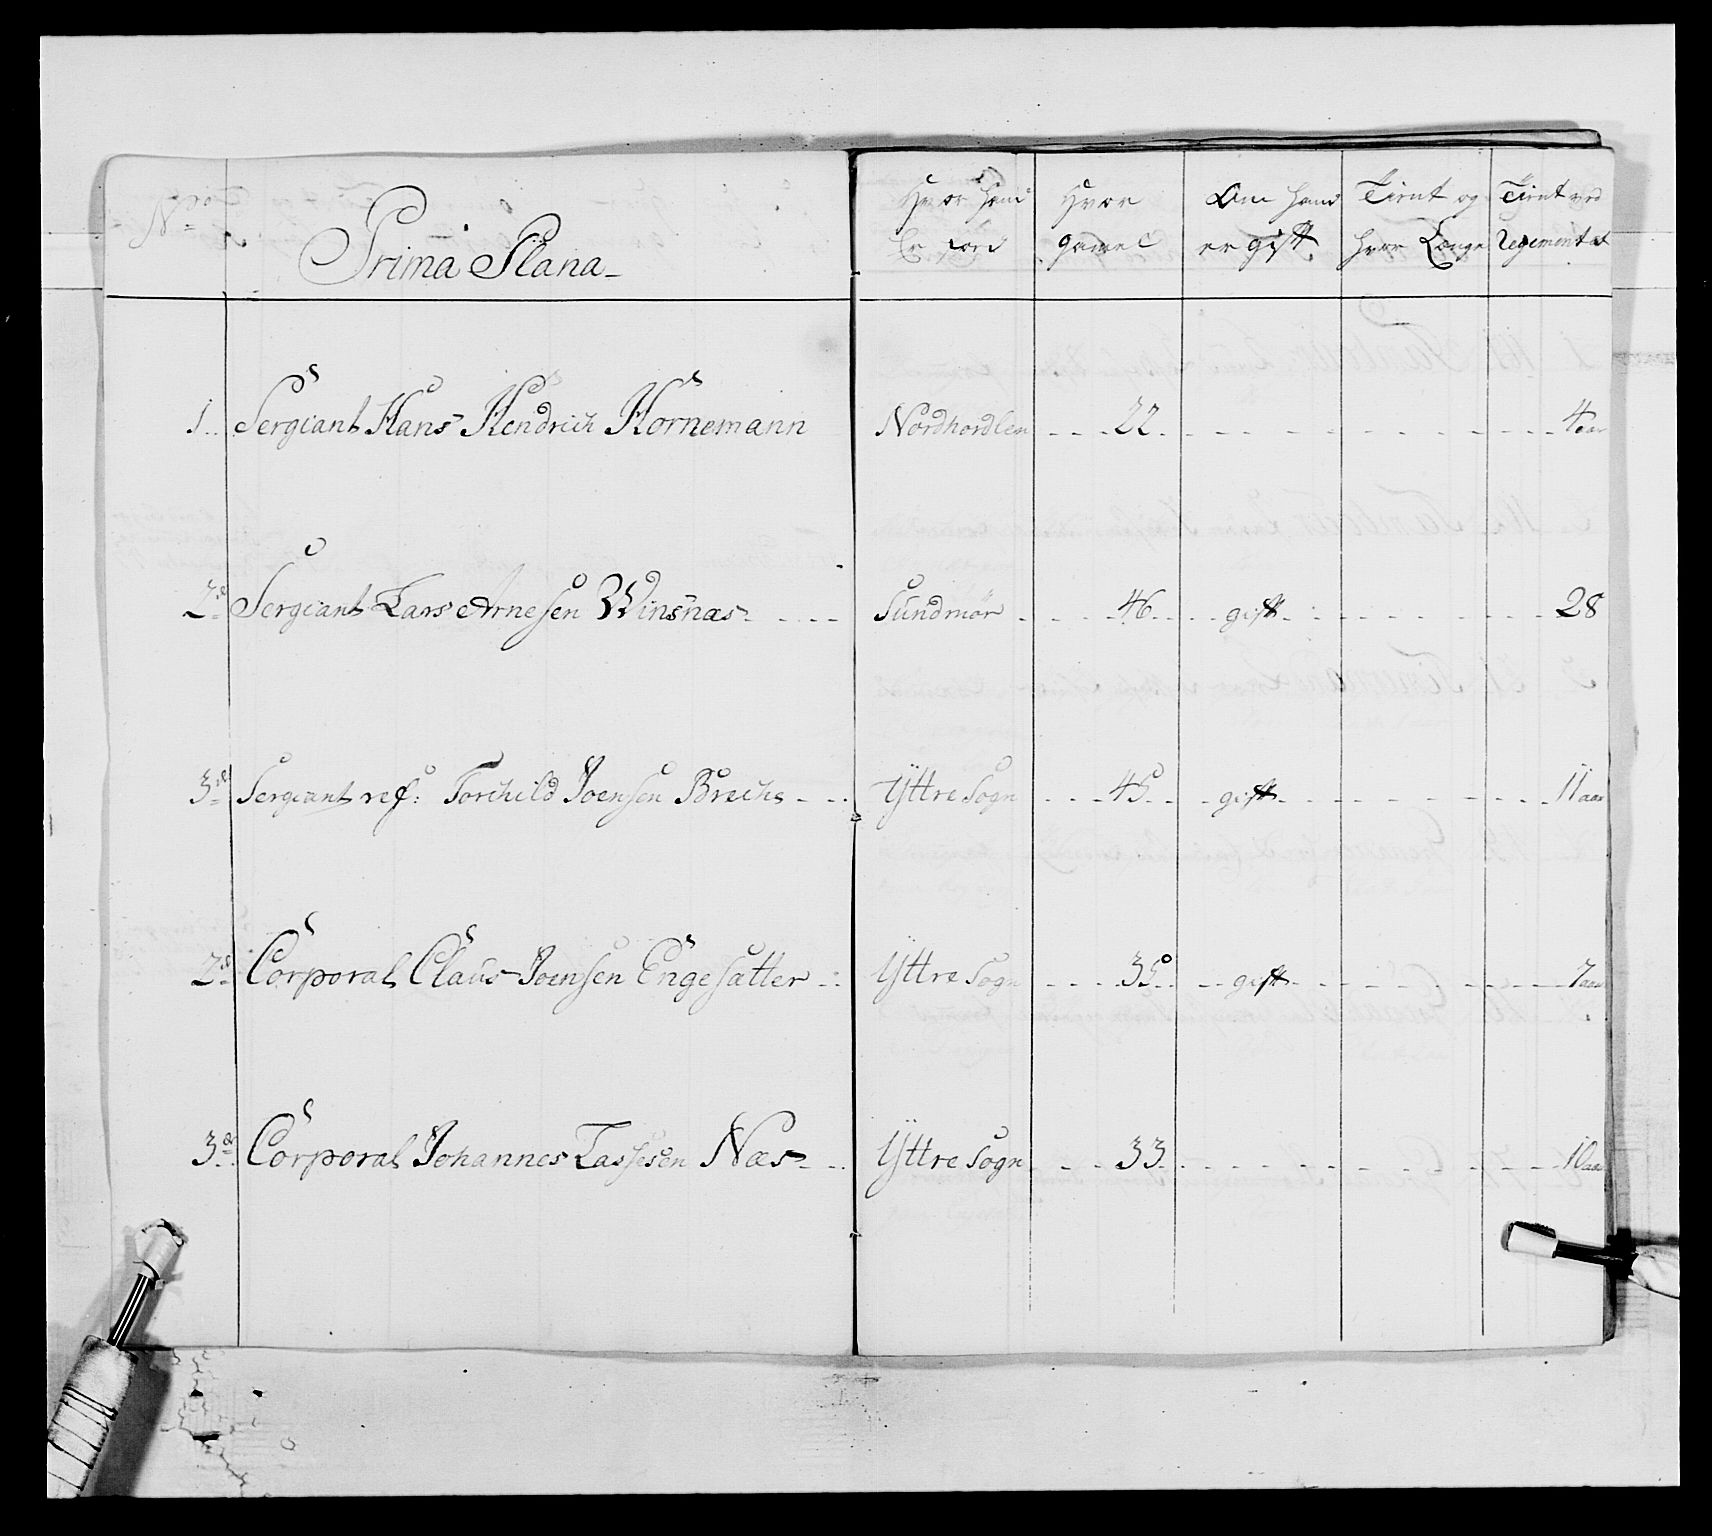 No Prima Plana
Hvor hand Er
Hvor gamel
Om hand er gift
Tient og hvor Længe
Tient ved Regementet
1 Sergiant Hans Hendrich Hornemann Nordhordlen 22 4 aar
2de Sergiant Lars Arnesen Winsnæs Sundmör 46 gift 28
3de Sergiant ref: Torchild Joensen Brechs Ÿttre Sogn 45 gift 11 aar
2de Corporal Claus Joensen Engesætter Ÿttre Sogn 35 gift 7 aar
3de Corporal Johannes Lassesen Næs Ÿttre Sogn 33 10 aar